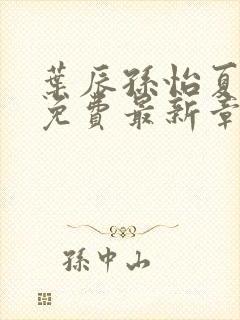 葉辰孫怡夏
免費最新章
孫中山